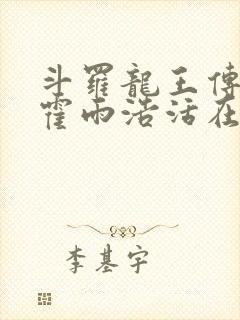 斗羅龍王傳
霍雨浩活在
李基宇